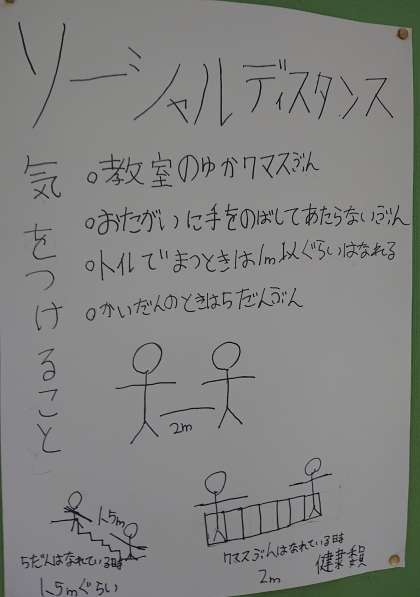 ソーシャルディスタンス
気をつけること
○教室のゆか7マスぶん
○おたがいに手をのばしてあたらないぶん
○トイレでまつときは1m以上ぐらいはなれる
○かいだんのときは5だんぶん
2m
1.5m
5だんはなれている時
1.5mぐらい
7マスぶんはなれている時
2m
健康委員